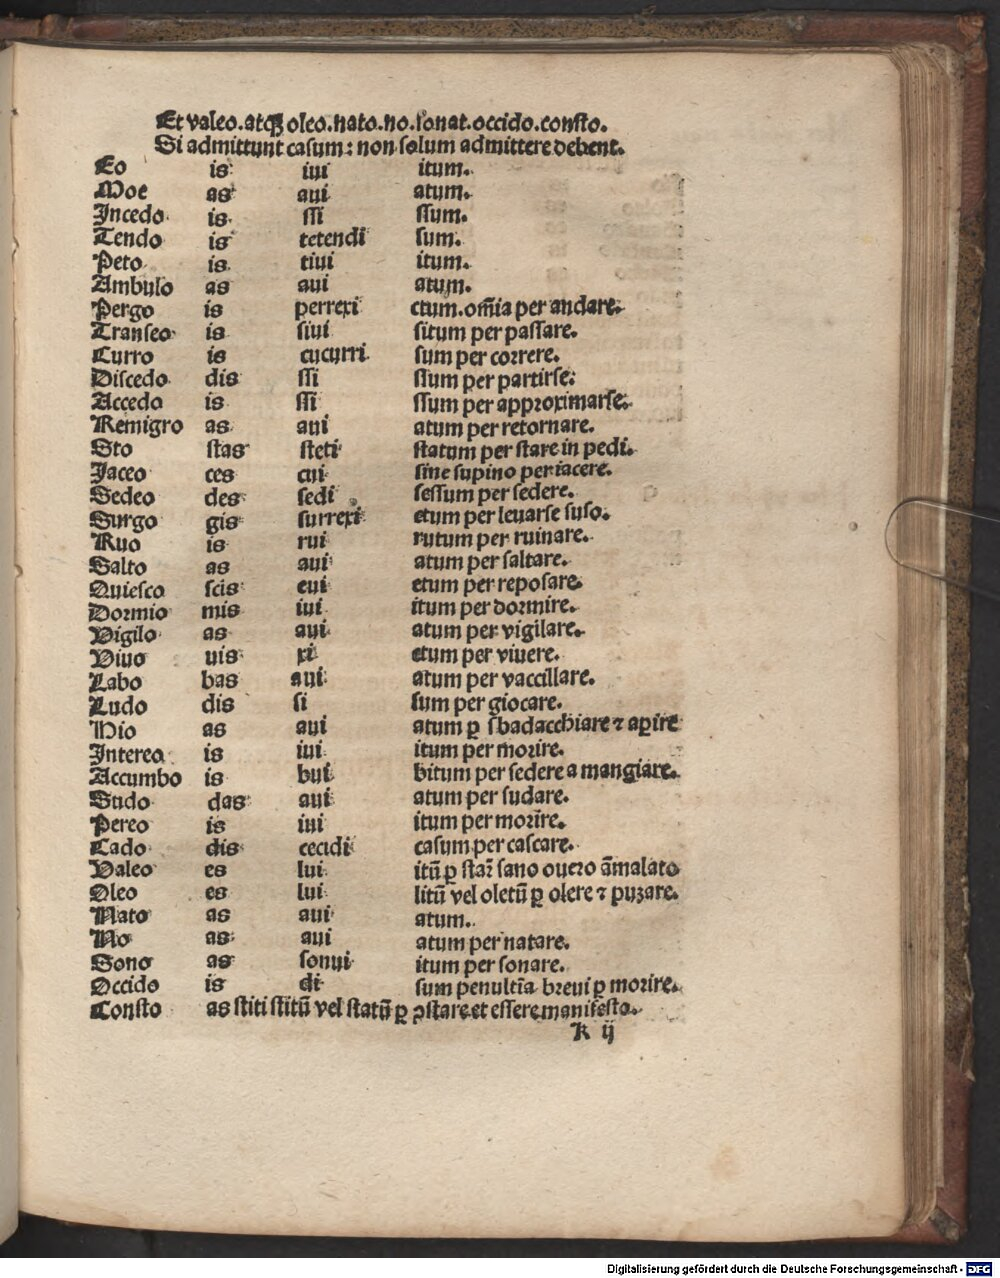 Et valeo.atqꝫ oleo.nato.no.sonat.occido.consto.
Si admittunt casum: non solum admittere debent.
Eo is iui itum.
Moe as aui atum.
Incedo is ssi ssum.
Tendo is tetendi sum.
Peto is tiui itum.
Ambulo as aui atum.
Pergo is perrexi ctum.om̄ia per andare.
Transeo is siui situm per passare.
Curro is cucurri sum per correre.
Discedo dis ssi ssum per partirse.
Accedo is ssi ssum per approximarse.
Remigro as aui atum per retornare.
Sto stas steti statum per stare in pedi.
Jaceo ces cui sine supino per iacere.
Sedeo des sedi sessum per sedere.
Surgo gis surrexi ctum per leuarse suso.
Ruo is rui rutum per ruinare.
Salto as aui atum per saltare.
Quiesco scis eui etum per reposare.
Dormio mis iui itum per dormire.
Vigilo as aui atum per vigilare.
Viuo uis xi ctum per viuere.
Labo bas aui atum per vaccillare.
Ludo dis si sum per giocare.
Hio as aui atum ꝑ sbadacchiare ⁊ aꝑire
Intereo is iui itum per morire.
Accumbo is bui bitum per sedere a mangiare.
Sudo das aui atum per sudare.
Pereo is iui itum per morire.
Cado dis cecidi casum per cascare.
Valeo es lui itū ꝑ star̄ sano ouero āmalato
Oleo es lui litū vel oletū ꝑ olere ⁊ puzare.
Nato as aui atum.
No as aui atum per natare.
Sono as sonui itum per sonare.
Occido is di sum penultīa breui ꝑ morire.
Consto as stiti stitū vel statū ꝑ ꝯstare et essere manifesto.
k ij
Digitalisierung gefördert durch die Deutsche Forschungsgemeinschaft - DFG